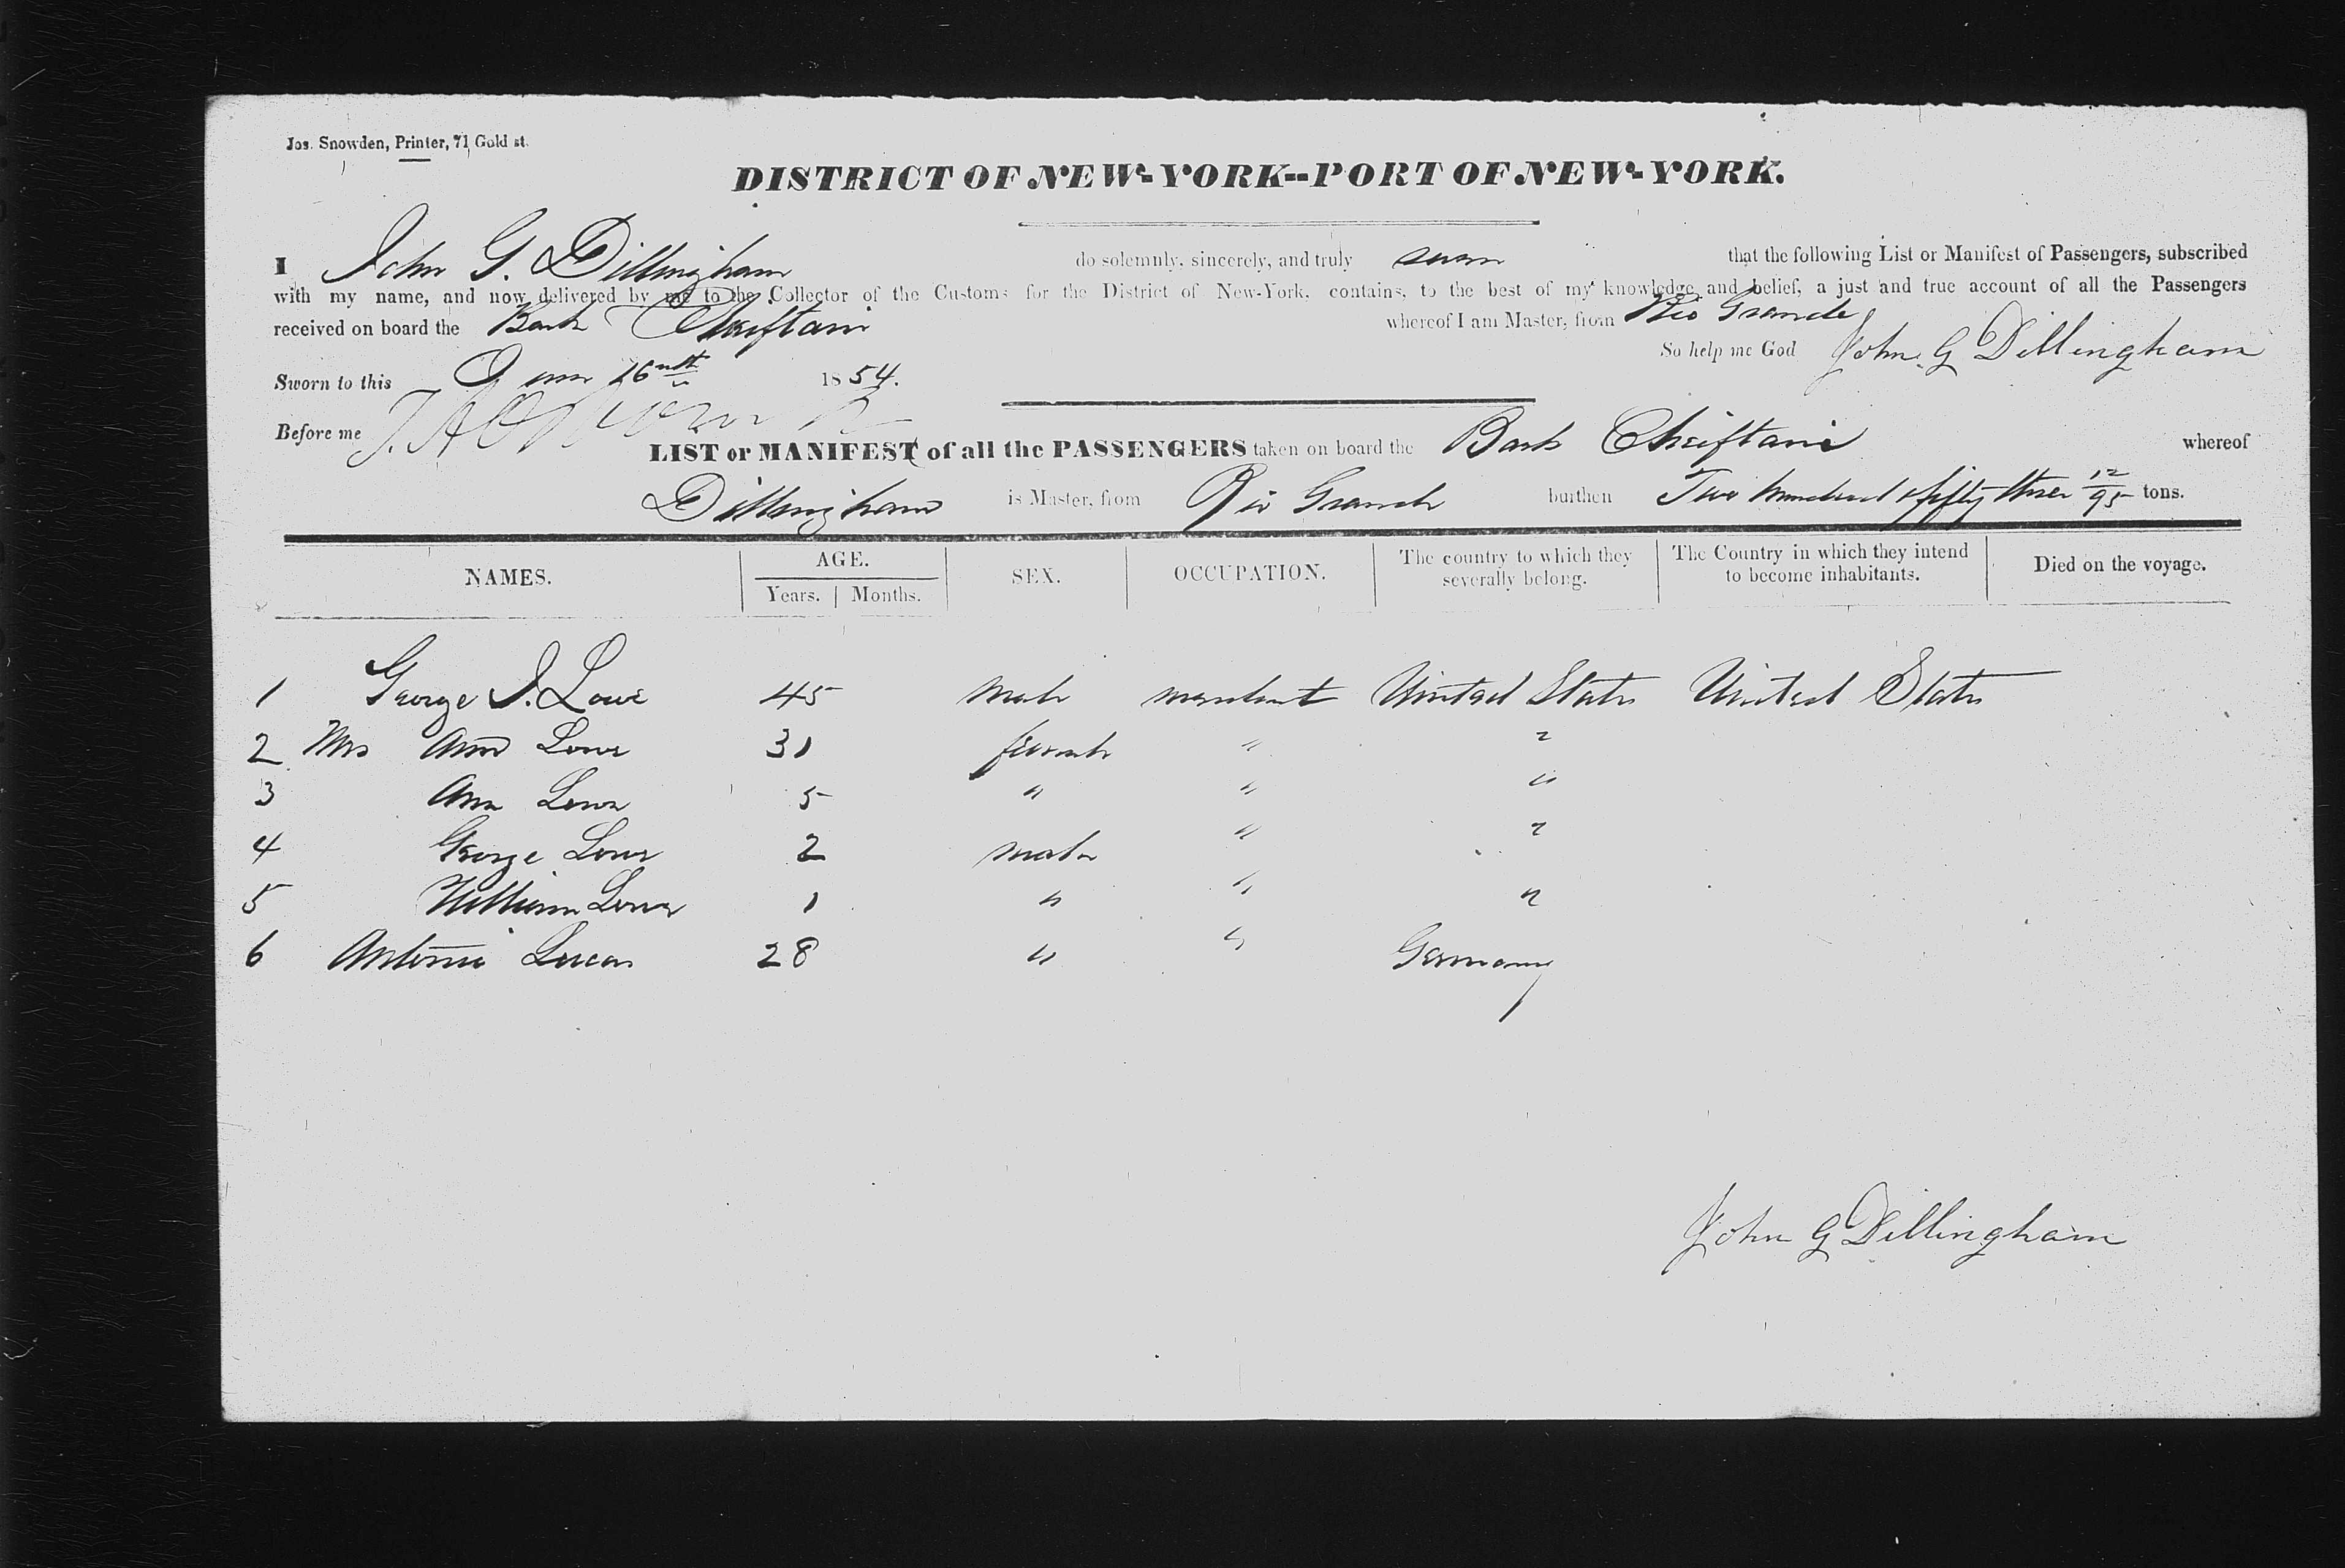 Jos. Snowden, Printer, 71 Gold st.
DISTRICT OF NEW-YORK--PORT OF NEW-YORK.
I John G. Dillingham do solemnly, sincerely, and truly swear that the following List or Manifest of Passengers, subscribed
with my name, and now delivered by me to the Collector of the Customs for the District of New-York, contains, to the best of my knowledge and belief, a just and true account of all the Passengers
received on board the Bark Cheiftain whereof I am Master, from Rio Grande
So help me God John G Dillingham
Sworn to this 16 1854.
Before me
LIST or MANIFEST of all the PASSENGERS taken on board the Bark Cheiftain whereof
Dillingham is Master, from Rio Grande burthen Two hundred & fifty three 12/95 tons.
NAMES. AGE. SEX. OCCUPATION. The country to which they severally belong. The Country in which they intend to become inhabitants. Died on the voyage.
Years. Months.
1 George J. Lowe 45 male merchant United States United States
2 Mrs Ann Lowe 31 female " "
3 Ann Lowe 5 " " "
4 George Lowe 2 male " "
5 William Lowe 1 " " "
6 Antonie Lucas 28 " " Germany
John G Dillingham